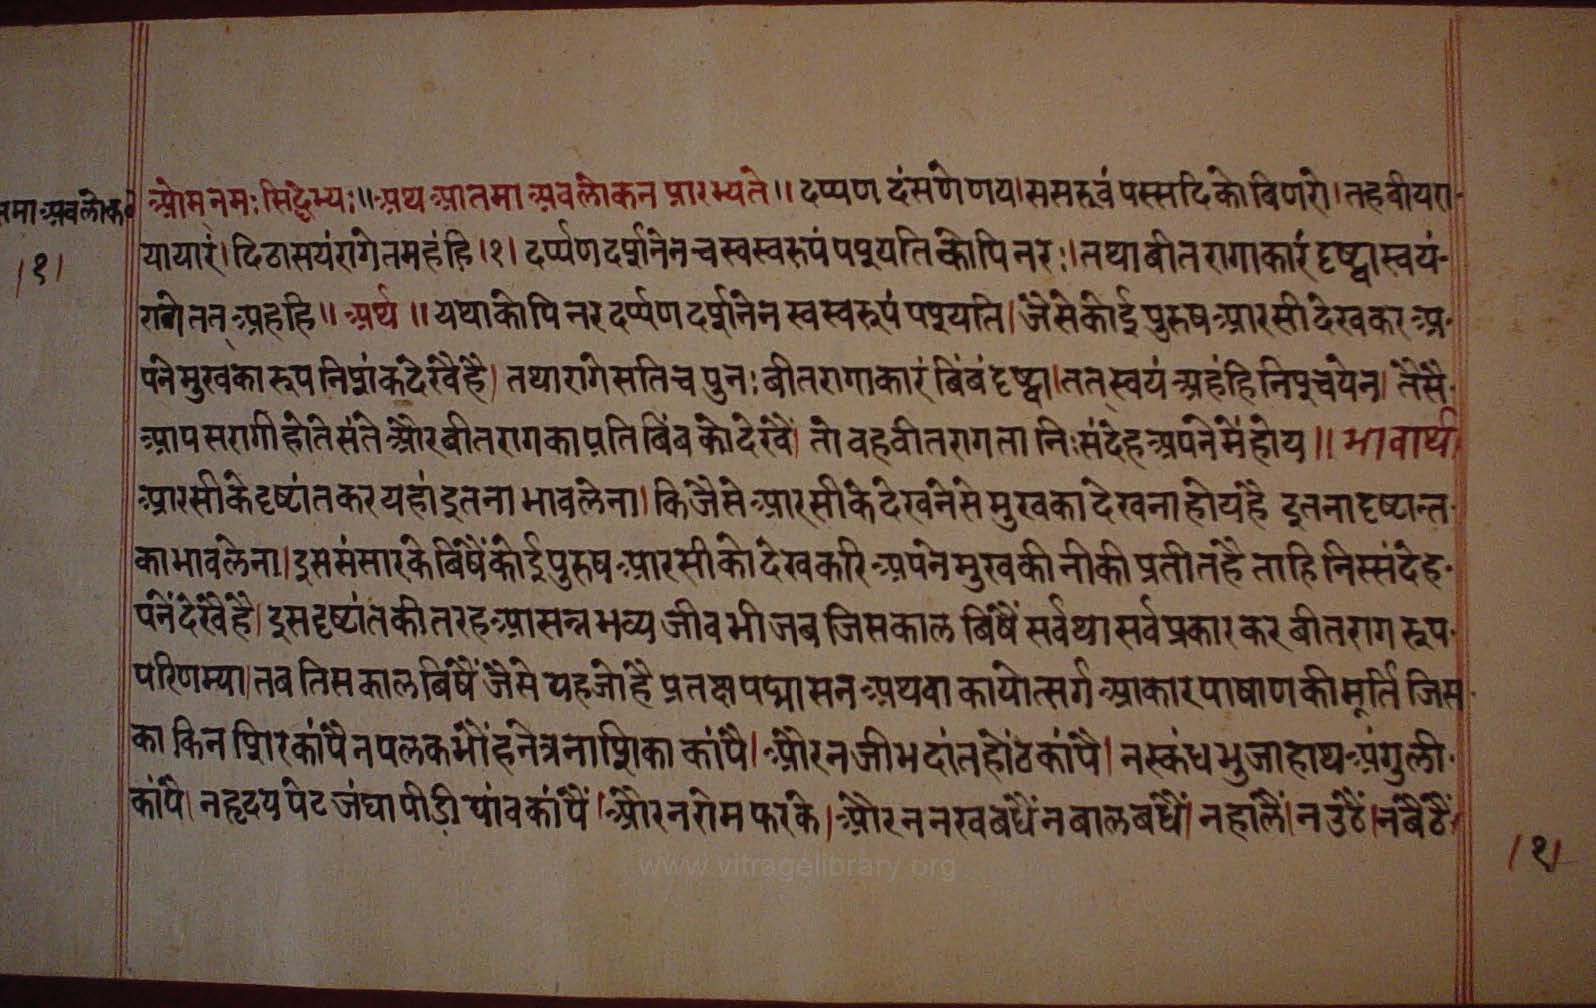 तमा अवलोकन
।१।
ओम नमः सिद्धेभ्यः॥ अथ आतमा अवलोकन प्रारभ्यते॥ दप्पण दंसणेणय। ससरुवं पस्सदि कोविणरो। तहवीयरा
यायारं। दिठासयंरागेतमहंहि।१। दर्प्पण दर्शनेन च स्वस्वरूपं पश्यति कोपि नरः। तथा बीतरागाकारं दृष्ट्वा स्वयं
रागे तत् अहहि॥ अर्थ॥ यथा कोपि नर दर्प्पण दर्शनेन स्वस्वरूपं पश्यति। जैसे कोई पुरुष आरसी देखकार अ
पने मुखका रूप निशंक देखै है। तथा रागे सति च पुनः बीतरागाकारं बिंबं दृष्ट्वा। तत् स्वयं अहंहि निश्चयेन। तैसै
आप सरागी होते संते और बीतराग का प्रतिबिंब को देखै। तो वह वीतरागता निःसंदेह अपने में होय॥ भावार्थ
आरसी के दृष्टांत कर यहां इतना भाव लेना। कि जैसे आरसी के देखने से मुख का देखना होय है इतना दृष्टान्त
का भाव लेना। इस संसार के बिषैं कोई पुरुष आरसी को देखकरि अपने मुख की नीकी प्रतीत है ताहि निस्संदेह
पनें देखें है। इस दृष्टांत की तरह आसन्न भव्य जीव भी जब जिस काल बिषैं सर्वथा सर्व प्रकार कर बीतराग रूप
परिणम्या। तब तिस काल बिषैं जैसे यह जो है प्रतक्ष पद्मासन अथवा कायोत्सर्ग आकार पाषाण की मूर्ति जिस
का कि न शिर कांपै न पलक भौंह नेत्र नाशिका कांपै। और न जीभ दांत होंठ कांपै। न स्कंध भुजा हाथ अंगुली
कांपै। न हृदय पेट जंघा पीडी पांव कांपैं। और न रोम फरके। और न नख बधैं न बाल बधैं। न हालैं। न उठैं। न बैठैं
।१।
www.vitragelibrary.org